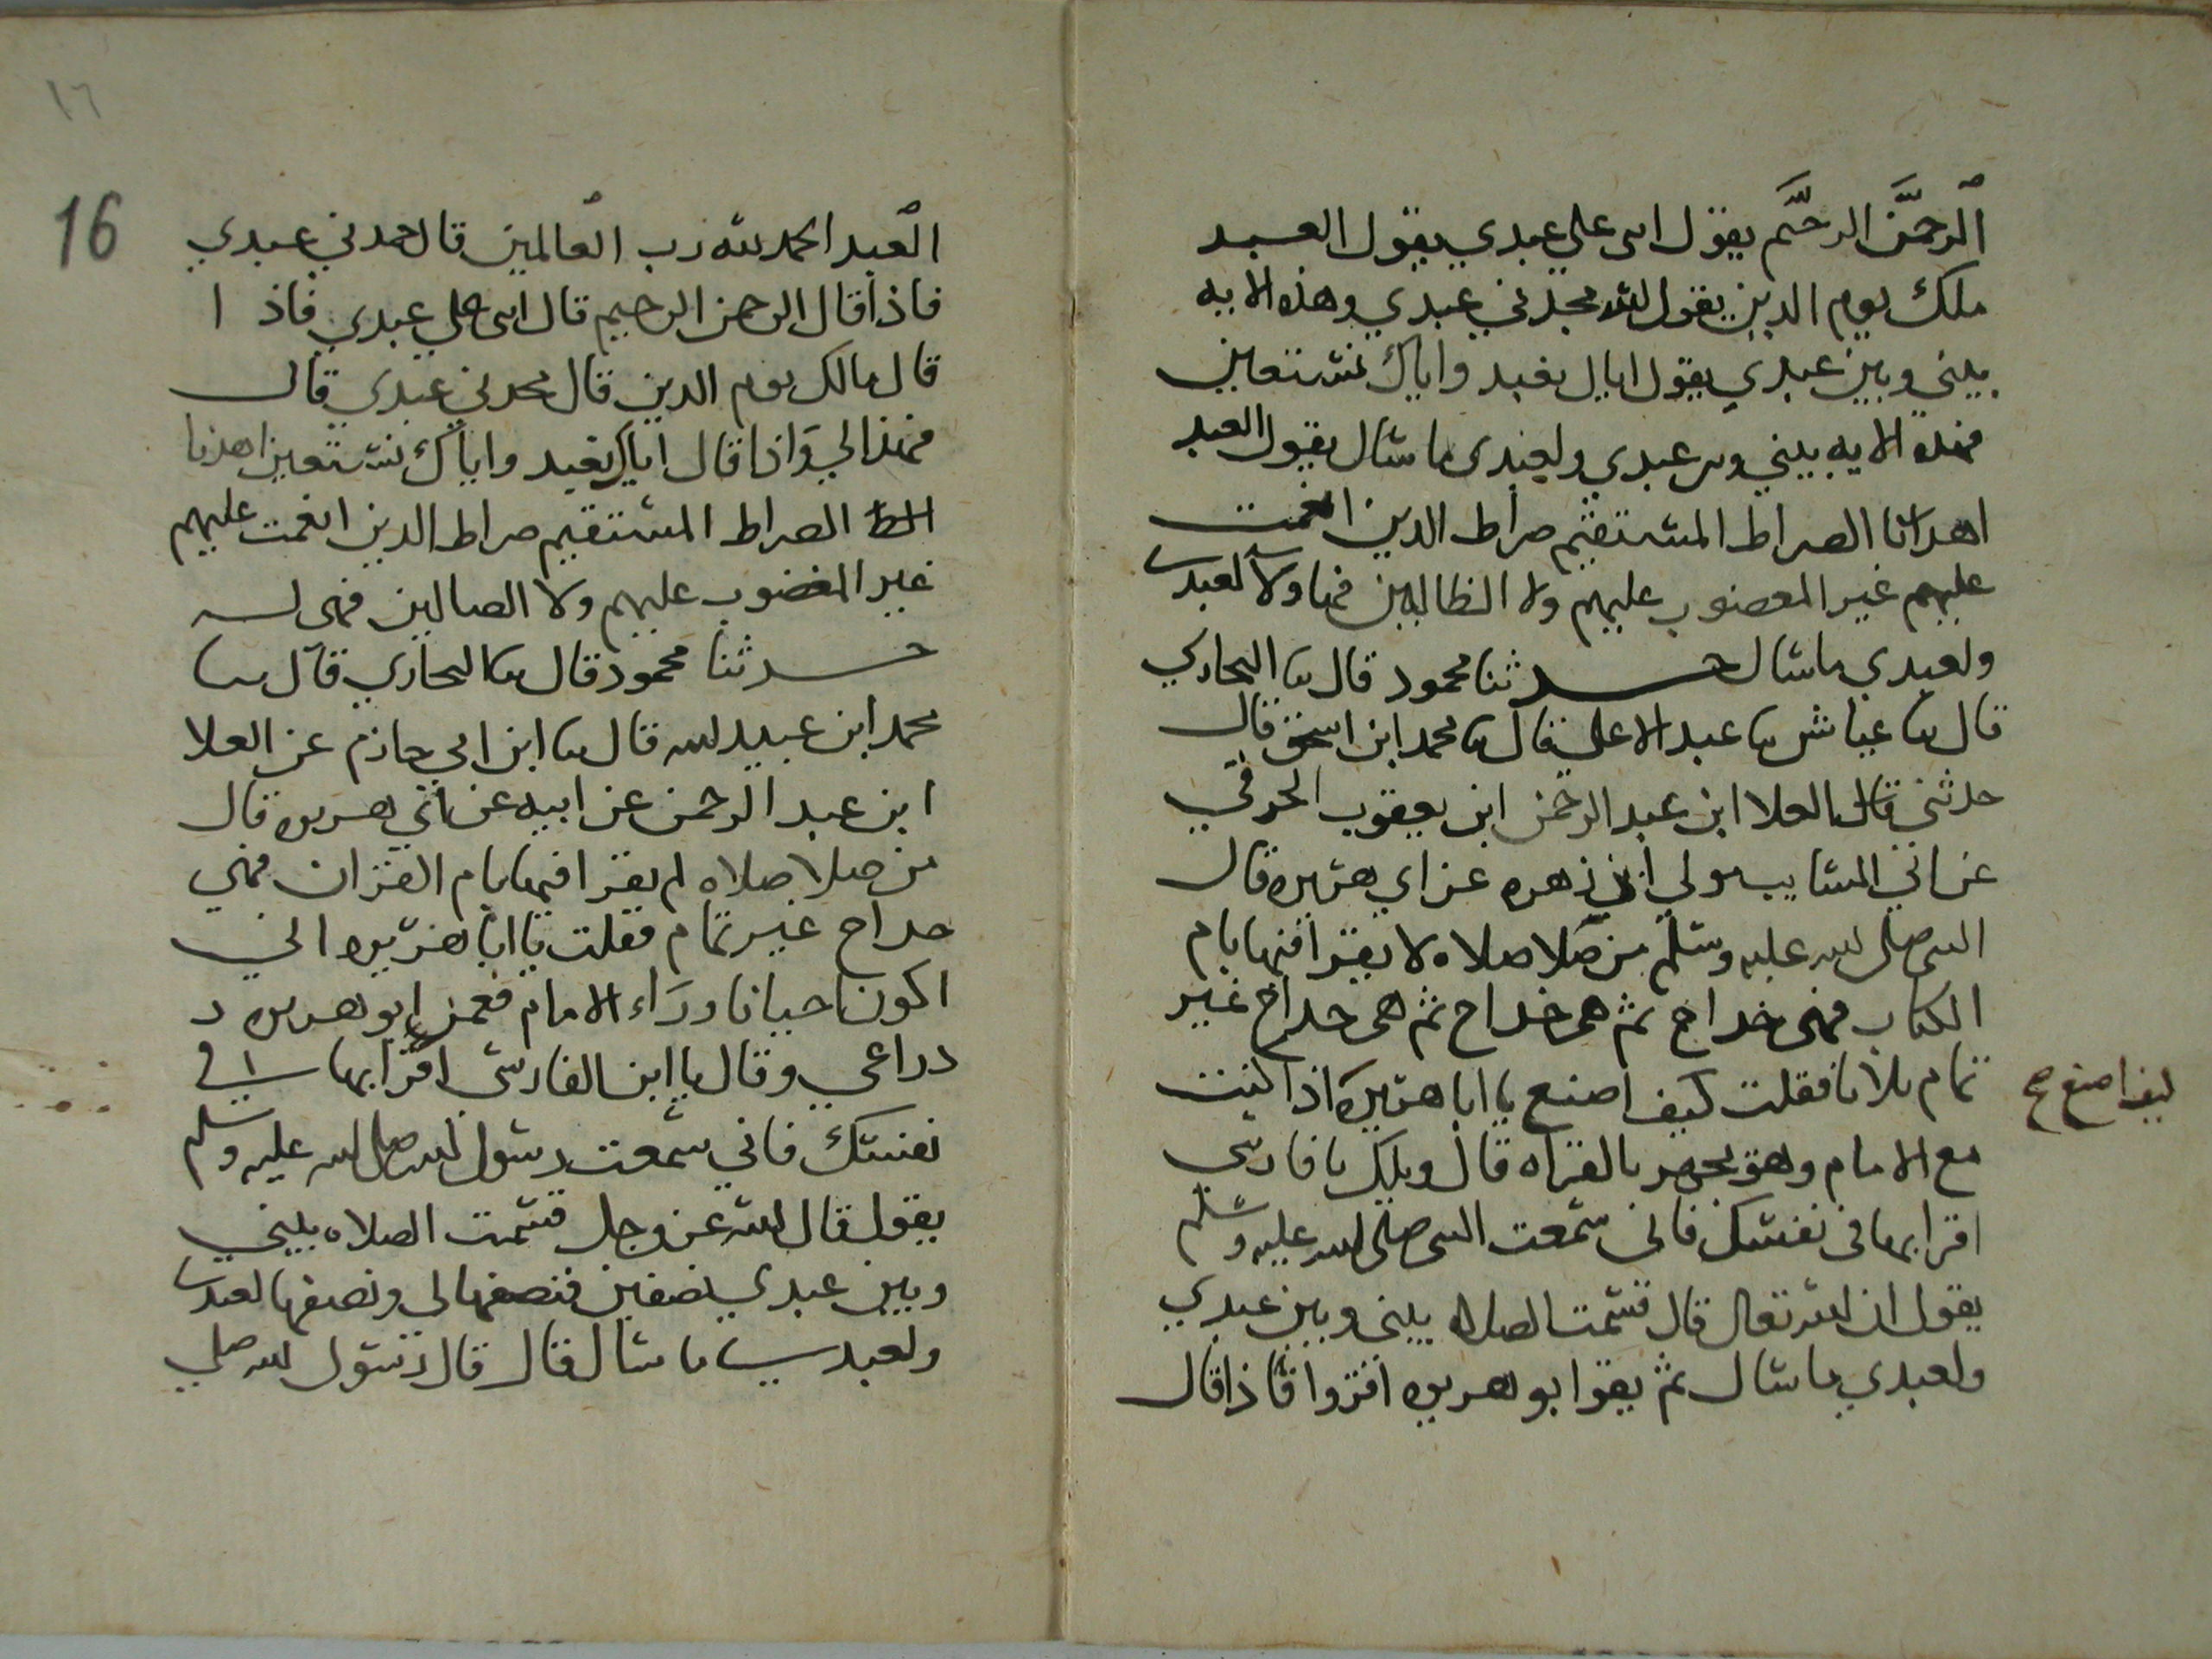 الرحمن الرحيم يقول اثنى على عبدي يقول العبد
ملك يوم الدين يقول الله مجدني عبدي وهذه الايه
بيني وبين عبدي يقول اياك نعبد واياك نستعين
فهذه الايه بيني وبين عبدي ولعبدي ما سال يقول العبد
اهدنا الصراط المستقيم صراط الدين انعمت
عليهم غير المغضوب عليهم ولا الظالين فهاولا لعبدي
ولعبدي ما سال حدثنا محمود قال ثنا البخاري
قال ثنا عياش ثنا عبد الاعلى قال ثنا محمد ابن اسحق قال
حدثني العلا ابن عبد الرحمن ابن يعقوب الحرقي
عن ابي السايب مولي ابن زهره عن ابي هريره قال
النبي صلى الله عليه وسلم من صلا صلاه لا يقرا فيها بام
الكتاب فهي خداج ثم هي خداج ثم هي خداج غير
تمام ثلاثا فقلت كيف اصنع يا ابا هريره اذا كنت
كيف اصنع صح
مع الامام وهو يجهر بالقراه قال ويلك يا فارسي
اقرا بها في نفسك فاني سمعت النبي صلى الله عليه وسلم
يقول ان الله تعالى قال قسمت الصلاه بيني وبين عبدي
ولعبدي ما سال ثم يقو ابو هريره اقروا فاذا قال
١٦
16
العبد الحمد لله رب العالمين قال حمدني عبدي
فاذا قال الرحمن الرحيم قال اثنى علي عبدي فاذا
قال مالك يوم الدين قال مجدني عبدي قال
فهذا لي واذا قال اياك نعبد واياك نستعين اهدنا
الصراط المستقيم صراط الدين انعمت عليهم
غير المغضوب عليهم ولا الضالين فهي له
حدثنا محمود قال ثنا البخاري قال ثنا
محمد ابن عبيد الله قال ثنا ابن ابي حازم عن العلا
ابن عبد الرحمن عن ابيه عن ابي هريره قال
من صلا صلاه لم يقرا فيها بام القران فهي
خداج غير تمام فقلت يا ابا هريره اني
اكون احيانا وراء الامام فغمز ابو هريره د
دراعي وقال يا ابن الفارسي اقرا بها في
نفسك فاني سمعت رسول الله صلى الله عليه وسلم
يقول قال الله عز وجل قسمت الصلاه بيني
وبين عبدي نصفين فنصفها لي ونصفها لعبدي
ولعبدي ما سال قال قال رسول الله صلي